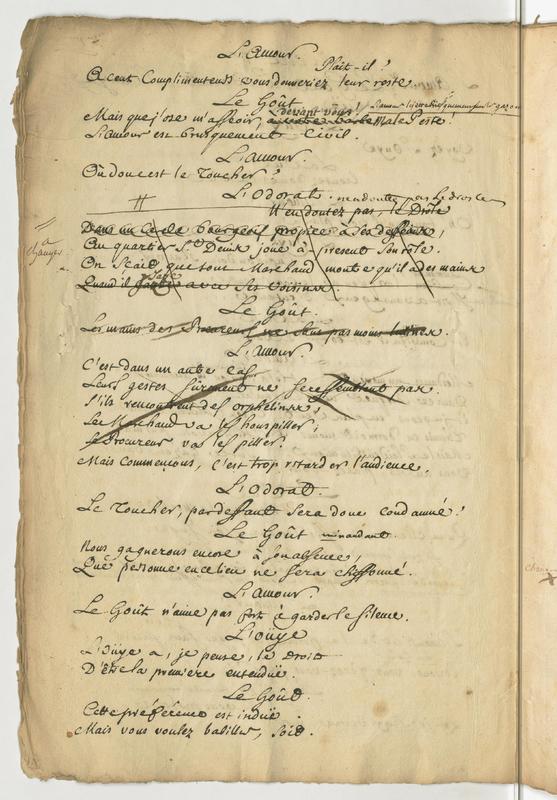 L'Amour.
Plait-il?
A ceux Complimenteurs vous donneriez leur reste
Le Goût
Mais que j'ose m'asseoir, devant vous! Malepeste!
L'Amour est brusquement Civil.
L'Amour.
Où donc est le Toucher?
L'Odorat.
N'en doutez pas, le Drôle
Dans un Bourgeois propice à ses desseins,
à changer
Au quartier St Denis joue à présent son rôle.
On Scait que tout Marchand monte qu'il a des mains
Quand il avec ses voisines.
Le Goût.
Les mains des Procureurs ne sont pas moins lutines.
L'Amour.
C'est dans un autre cas
Leurs gestes surement ne se ressemblent pas.
S'ils rencontrent des orphelines,
Le Marchand va les houspiller,
Le Procureur va les piller.
Mais commençons, c'est trop retarder l'audience.
L'Odorat.
Le Toucher, par deffaut sera donc condamné?
Le Goût minaudant.
Nous gagnerons encore à son absence,
Que personne en ce lieu ne sera chiffonné.
L'Amour.
Le Goût n'aime pas fort à garder le silence.
L'oüye
L'oüye a, je pense, le droit
D'être la première entenduë.
Le Goût.
Cette préférence est induë.
Mais vous voulez babiller, soit.